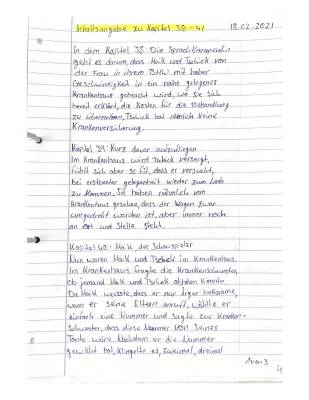 Inhaltsangabe zu Kapitel 38-41 18.02.2021
In dem Kapitel 38: Die Sprachtherapeutin
geht es darum, dass Maik und Tschick von
der Frau in ihrem BMW mit hoher
Geschwindigkeit in ein nahe gelegenes
Krankenhaus gebracht wird, wo sie sich
bereit erklärt, die Kosten für die Behandlung
zu übernehmen, Tschick hat nämlich keine
Krankenversicherung.
Kapitel 39: Kurz davor aufzufliegen
Im Krankenhaus wird Tschick versorgt,
fühlt sich aber so fit, dass er versucht,
bei erstbester gelegenheit wieder zum Lada
zu kommen, Sie haben nämlich vom
Krankenhaus gesehen, dass der Wagen zwar
umgedreht worden ist, aber immer noch
an Ort und Stelle steht.
Kapitel 40: Maik der Schauspieler
Nun waren Maik und Tschick im Krankenhaus.
Im Krankenhaus fragte die Krankenschwester,
ob jemand Maik und Tschick abholen könnte.
Da Maik wusste, dass er nur Ärger bekomme,
wenn er seine Eltern anruft, wählte er
einfach eine Nummer und sagte zur Kranken-
schwester, dass diese Nummer von seiner
Tante wäre. Nachdem er die Nummer
gewählt hat, klingelte es, zweimal, dreimal
1 von 3